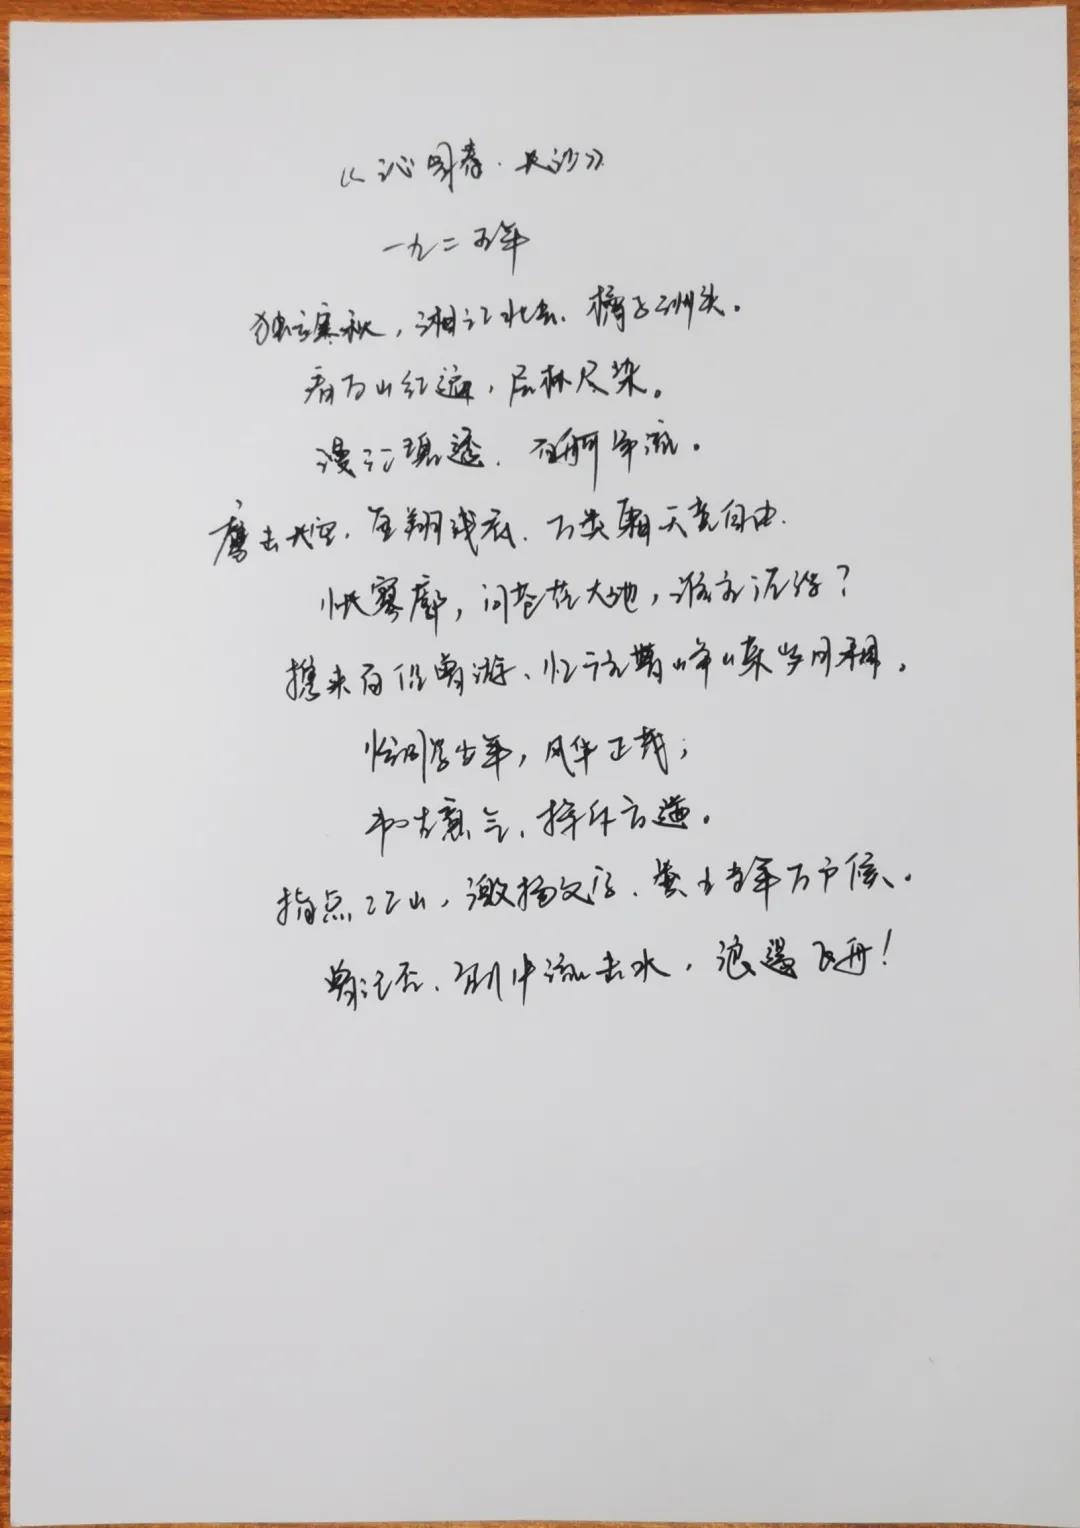 《沁园春·长沙》
一九二五年
独立寒秋，湘江北去、橘子洲头。
看万山红遍，层林尽染。
漫江碧透、百舸争流。
鹰击长空、鱼翔浅底、万类霜天竞自由.
怅寥廓，问苍茫大地，谁主沉浮？
携来百侣曾游、忆往昔峥嵘岁月稠。
恰同学少年，风华正茂；
书生意气、挥斥方遒。
指点江山，激扬文字、粪土当年万户侯。
曾记否、到中流击水，浪遏飞舟！